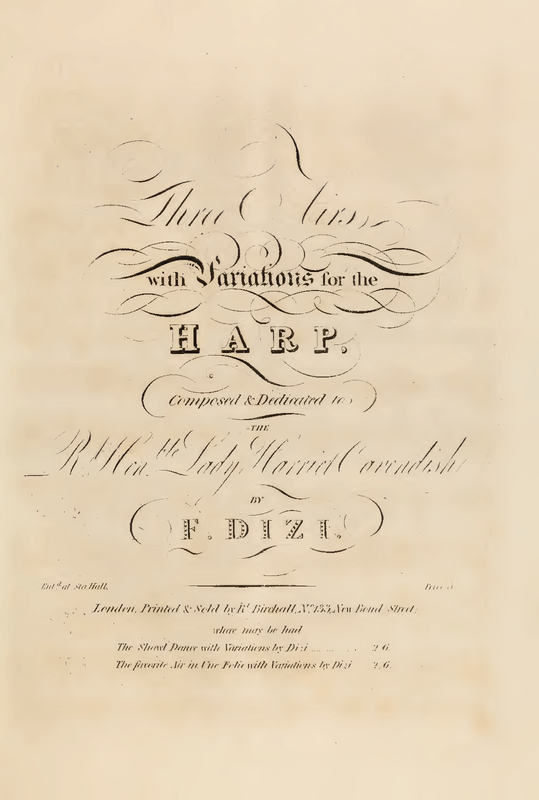 Three Airs
with Variations for the
HARP.
Composed & Dedicated to
THE
Rt. Hon.ble Lady Harriet Cavendish
BY
F. DIZI.
Ent.d at Sta. Hall. Price
London, Printed & Sold by R.t Birchall, No. 133, New Bond Street,
where may be had
The Shawl Dance with Variations by Dizi ........ 2/6.
The favorite Air in Une Folie with Variations by Dizi 2/6.